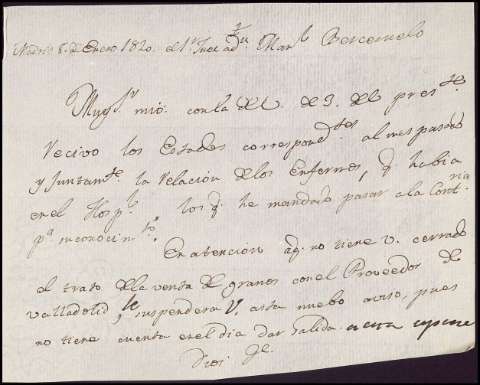 Madrid 8. de Enero 1820. Man.l Berceruelo
Muy S.r mio: con la de V. de 3. del pres.te
Recivo los Estados correspond.tes al mes pasado
y Juntam.te la Relacion de los Enfermos, q.e habia
en el Hosp.l los q.e he mandado pasar a la Cont.na
p.a su conocim.to.
En atencion aq.e no tiene V. cerrado
el trato de la venta de granos con el Proveedor de
Valladolid, le suspendera V. asta nuebo aviso, pues
no tiene cuenta en el dia dar Salida
Dios g.e